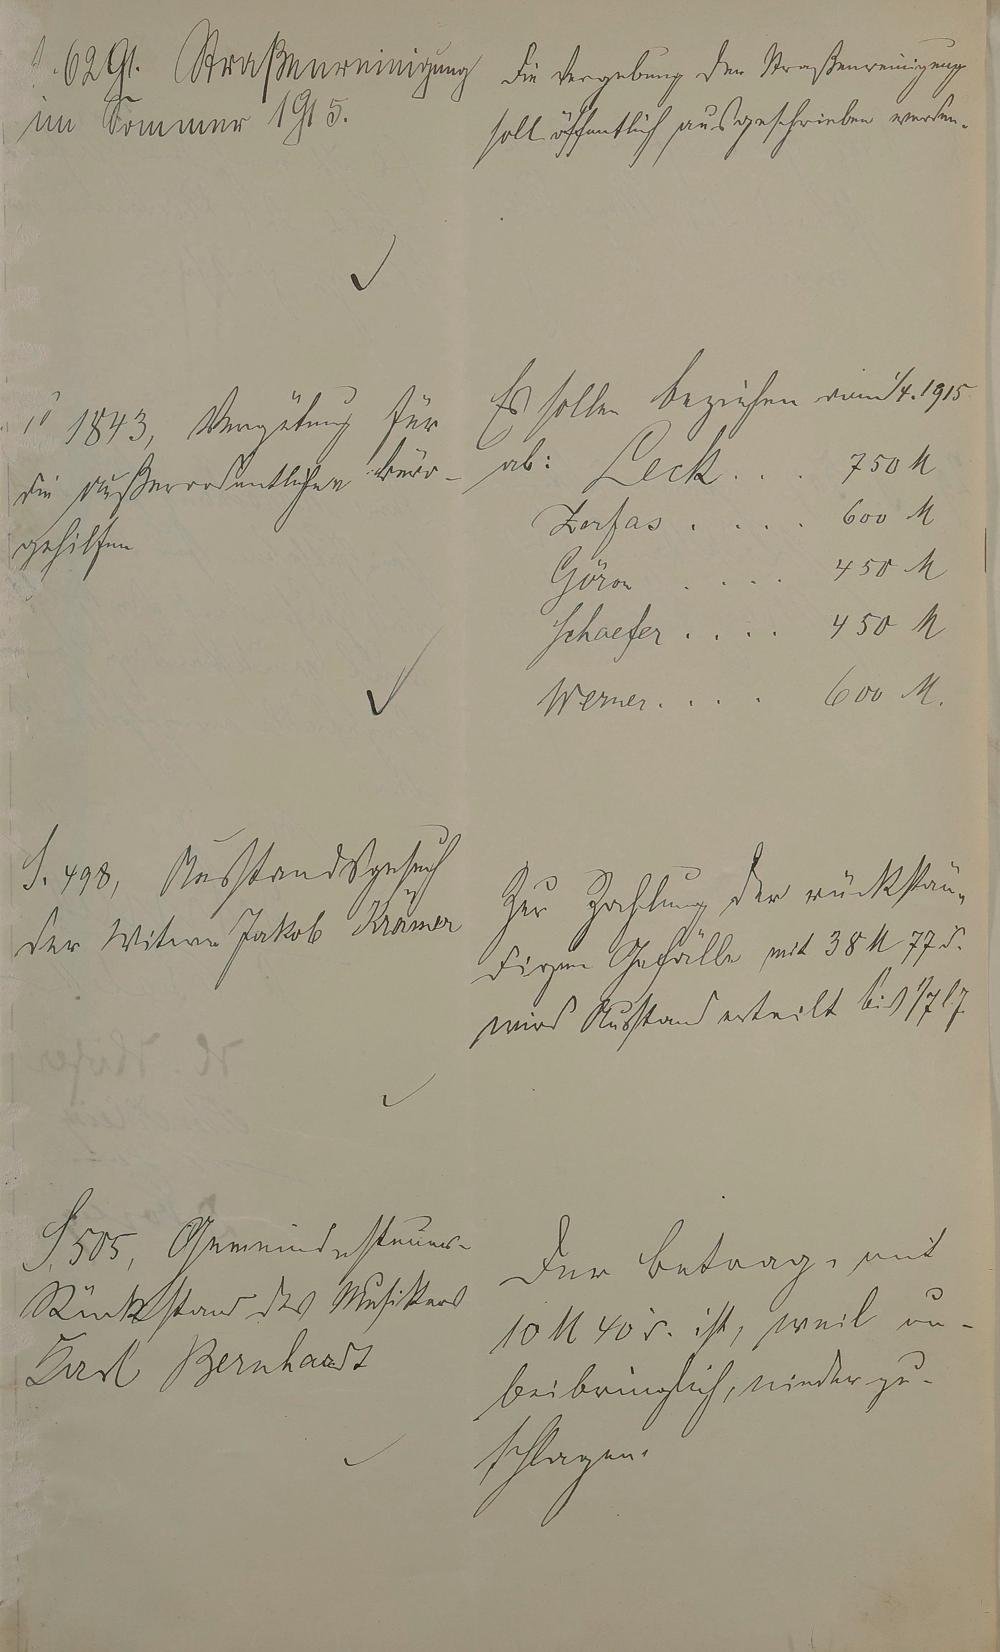 629. Straßenreinigung
im Sommer 1915.
Die Vergebung der Straßenreinigung
soll öffentlich ausgeschrieben werden.
1843, Vergütung für
die außerordentlichen Büro-
gehilfen
Es sollen beziehen vom 1/4. 1915
ab: Leck . . . 750 M
Zerfas . . . . 600 M
Göron . . . . 450 M
Schaefer . . . . 450 M
Werner . . . . 600 M.
S. 498, Ausstandsgesuch
der Witwe Jakob Krämer
Zur Zahlung der rückstän-
digen Gefälle mit 38 M 77 d.
wird Ausstand erteilt bis 1/7 l. J.
S. 505, Gemeindesteuer-
Rückstand des Musikers
Karl Bernhardt
Der Betrag, mit
10 M 40 d. ist, weil un-
beibringlich, niederzu-
schlagen.